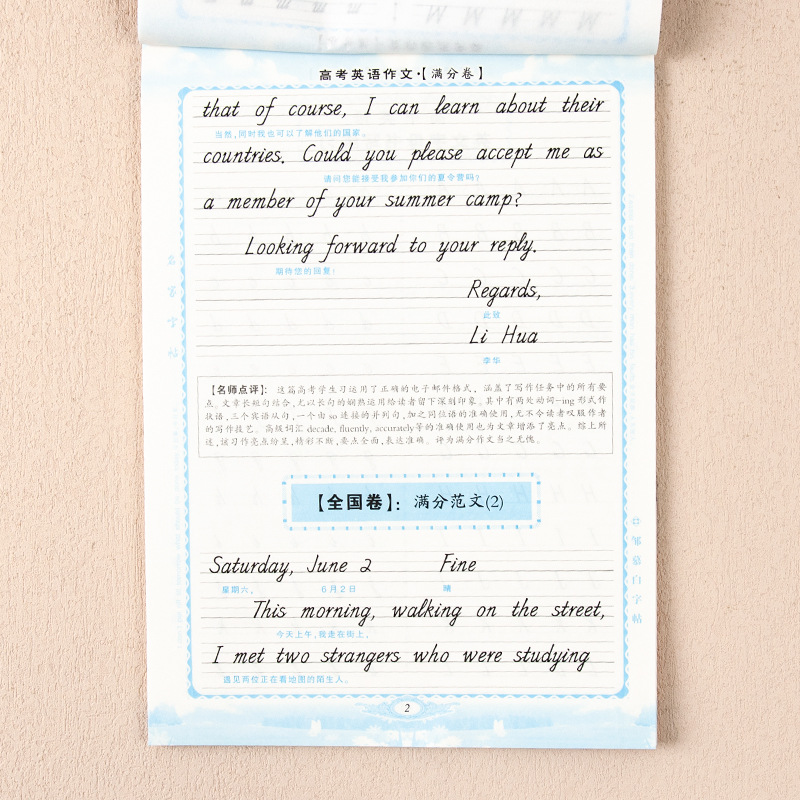 高考英语作文·【满分卷】
that of course, I can learn about their
当然,同时我也可以了解他们的国家。
countries. Could you please accept me as
请问您能接受我参加你们的夏令营吗?
a member of your summer camp?
Looking forward to your reply.
期待您的回复!
Regards,
此致
Li Hua
李华
【名师点评】: 这篇高考学生习运用了正确的电子邮件格式, 涵盖了写作任务中的所有要
点。文章长短句结合,尤以长句的娴熟运用给读者留下深刻印象。其中有两处动词-ing 形式作
状语,三个宾语从句,一个由 so 连接的并列句,加之同位语的准确使用,无不令读者叹服作者
的写作技艺。高级词汇 decade, fluently, accurately等的准确使用也为文章增添了亮点。综上所
述,该习作亮点纷呈,精彩不断,要点全面,表达准确。评为满分作文当之无愧。
【全国卷】: 满分范文(2)
Saturday, June 2 Fine
星期六, 6月2日 晴
This morning, walking on the street,
今天上午,我走在街上,
I met two strangers who were studying
遇见两位正在看地图的陌生人。
2